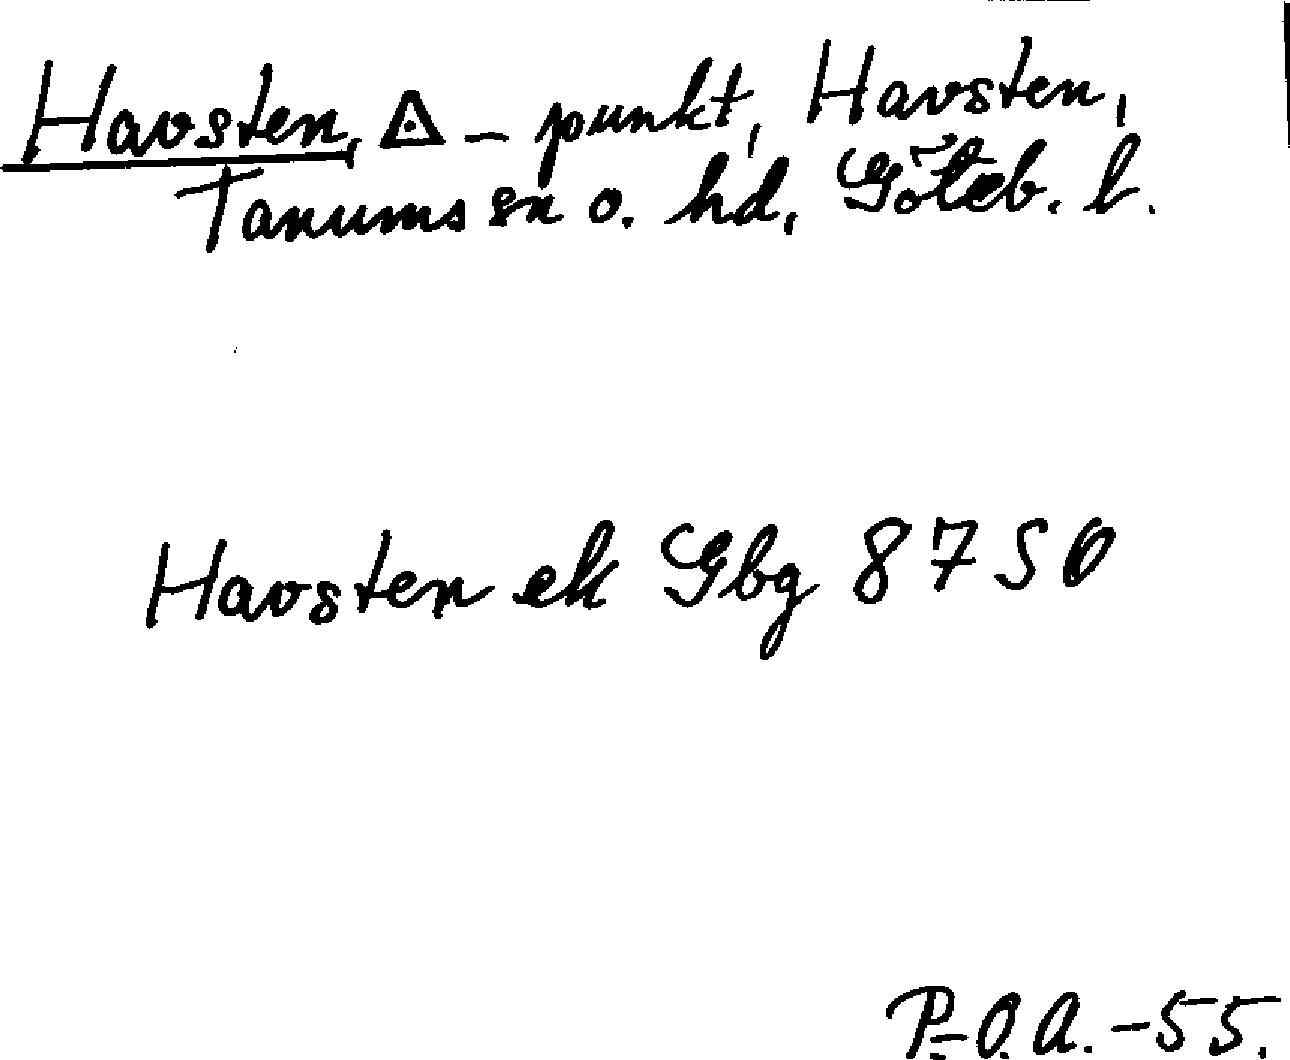 Havsten, △ - punkt, Havsten,
Tanums sn o. hd, Göteb. l.
Havsten ek Gbg 8750
P-O.A. -55.